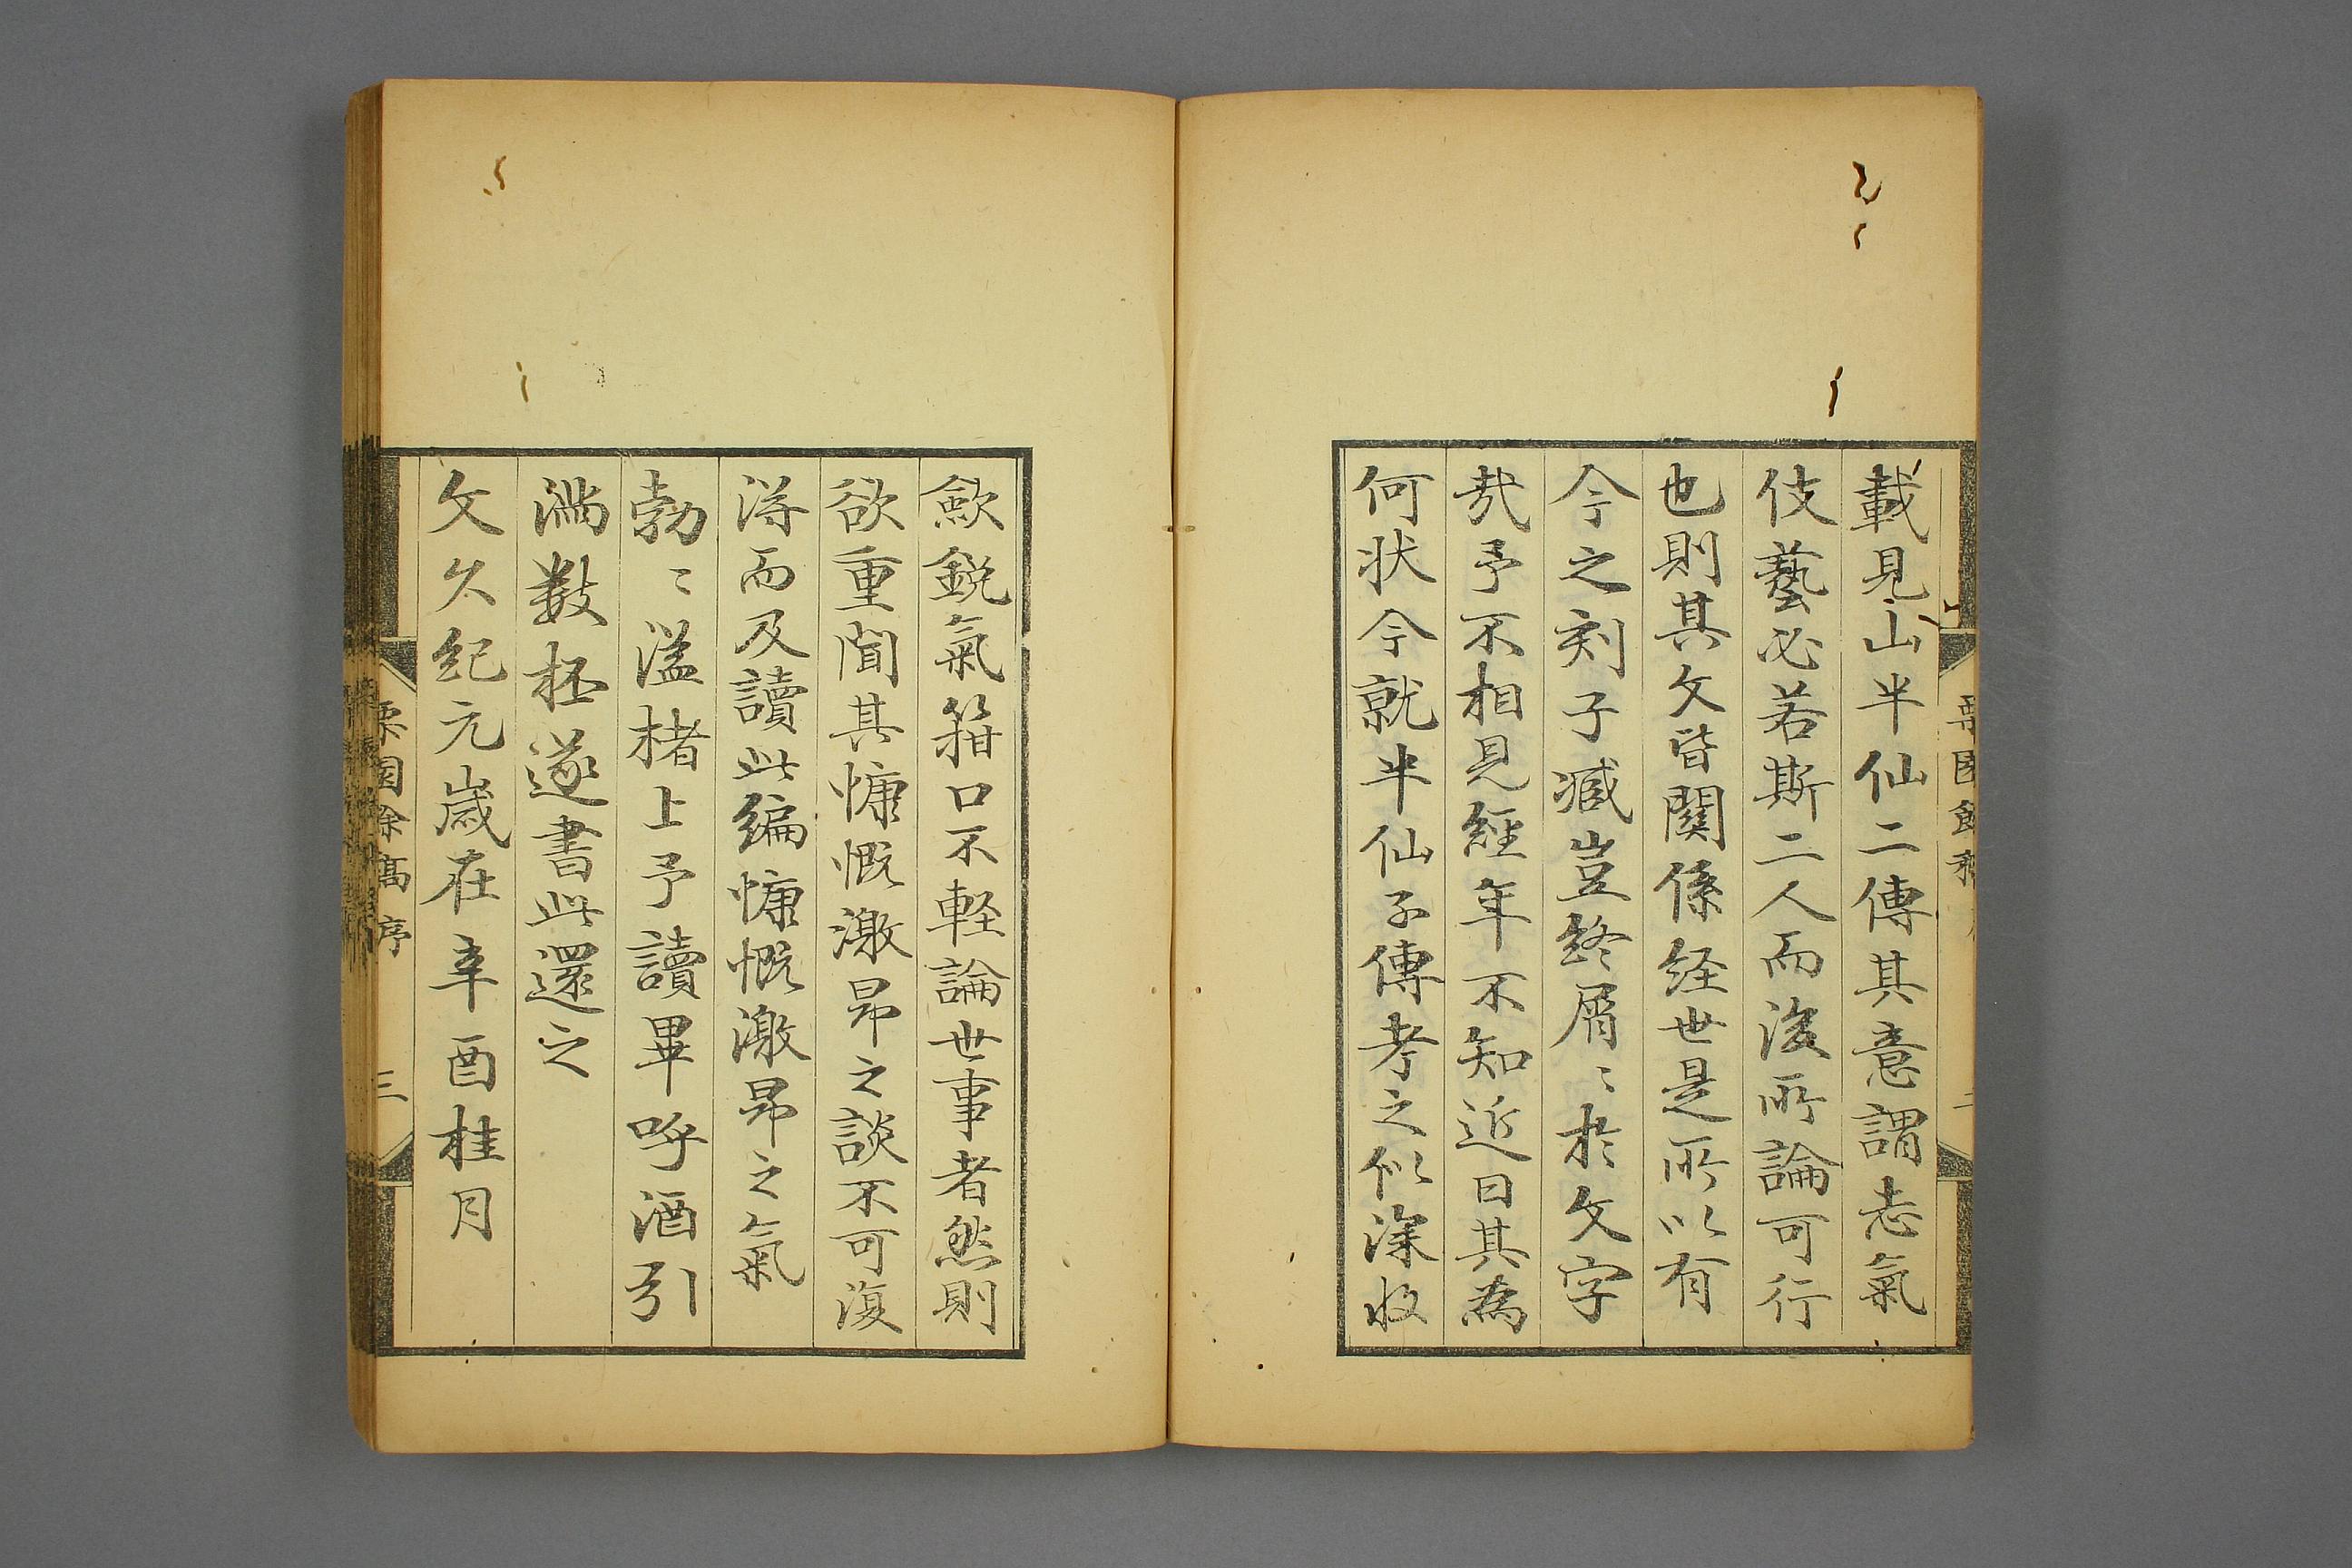 載見山半仙二傳其意謂志氣
伎藝必若斯二人而後所論可行
也則其文皆關係経世是所以有
今之刻子臧豈終屑〻於文字
哉予不相見經年不知近日其為
何状今就半仙子傳考之似深收
歛鋭氣箝口不軽論世事者然則
欲重聞其慷慨激昂之談不可復
得而及讀此編慷慨激昂之氣
勃〻溢楮上予讀畢呼酒引
満数杯遂書此還之
文久紀元歳在辛酉桂月
栗園餘稿序 三